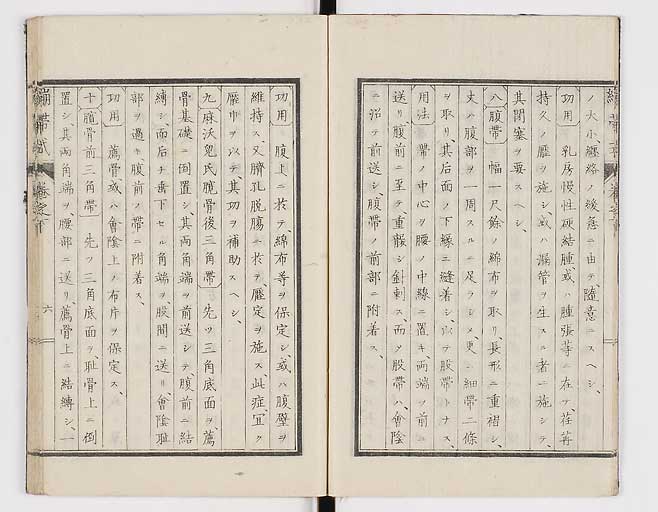 ノ大小纏絡ノ緩急ニ由テ、随意ニスヘシ、
功用 乳房慢性硬結腫、或ハ腫張等ニ在テ、荏苒
持久ノ壓ヲ施シ、或ハ漏管ヲ生スル者ニ施シテ、
其閉塞ヲ要スヘシ、
八腹帯 幅一尺餘ノ綿布ヲ取リ、長形ニ重褶シ、
丈ハ腹部ヲ一周スルニ足ラシメ、更ニ細帯二條
ヲ取リ、其后面ノ下縁ニ縫着シ、以テ股帯トナス、
用法 帯ノ中心ヲ腰ノ中線ニ置キ、両端ヲ前ニ
送リ、腹前ニ至テ、重骰シ針刺ス、而メ股帯ハ、會陰
ニ沿テ前送シ、腹帯ノ前部ニ附着ス、
功用 腹上ニ於テ、綿布等ヲ保定シ、或ハ腹壁ヲ
維持ス、又臍孔脱腸ニ於テ、壓定ヲ施ス、此症、宜ク
壓巾ヲ以テ、其功ヲ補助スヘシ、
九麻沃兒氏髖骨後三角帯 先ツ三角底面ヲ、薦
骨基礎ニ倒置シ、其両角端ヲ前送シテ、腹前ニ結
縛シ、而后チ垂下セル角端ヲ、股間ニ送リ、會陰耻
部ヲ過キ、腹前ノ帯ニ附着ス、
功用 薦骨、或ハ會陰上ノ布片ヲ保定ス、
十髖骨前三角帯 先ツ三角底面ヲ、耻骨上ニ倒
置シ、其両角端ヲ、腰部ニ送リ、薦骨上ニ結縛シ、一
繃帯
六